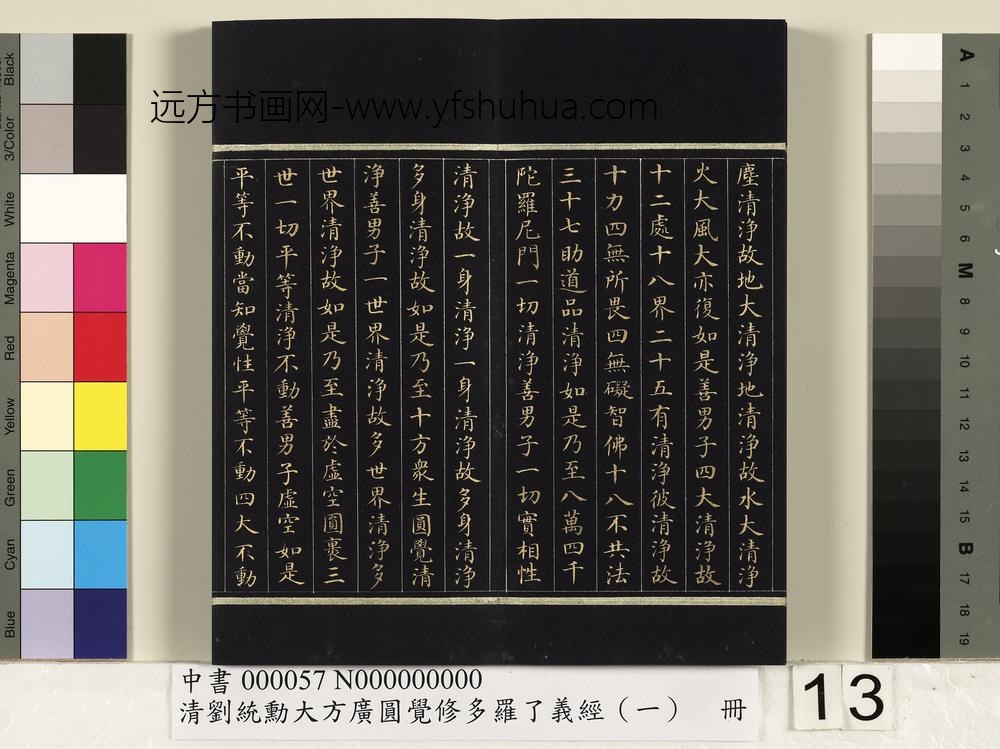 远方书画网-www.yfshuhua.com
塵清淨故地大清淨地清淨故水大清淨
火大風大亦復如是善男子四大清淨故
十二處十八界二十五有清淨彼清淨故
十力四無所畏四無礙智佛十八不共法
三十七助道品清淨如是乃至八萬四千
陀羅尼門一切清淨善男子一切實相性
清淨故一身清淨一身清淨故多身清淨
多身清淨故如是乃至十方衆生圓覺清
淨善男子一世界清淨故多世界清淨多
世界清淨故如是乃至盡於虛空圓裹三
世一切平等清淨不動善男子虛空如是
平等不動當知覺性平等不動四大不動
Black
3/Color
White
Magenta
Red
Yellow
Green
Cyan
Blue
A
1
2
3
4
5
6
M
8
9
10
11
12
13
14
15
B
17
18
19
中書 000057 N000000000
清劉統勳大方廣圓覺修多羅了義經（一） 冊
13